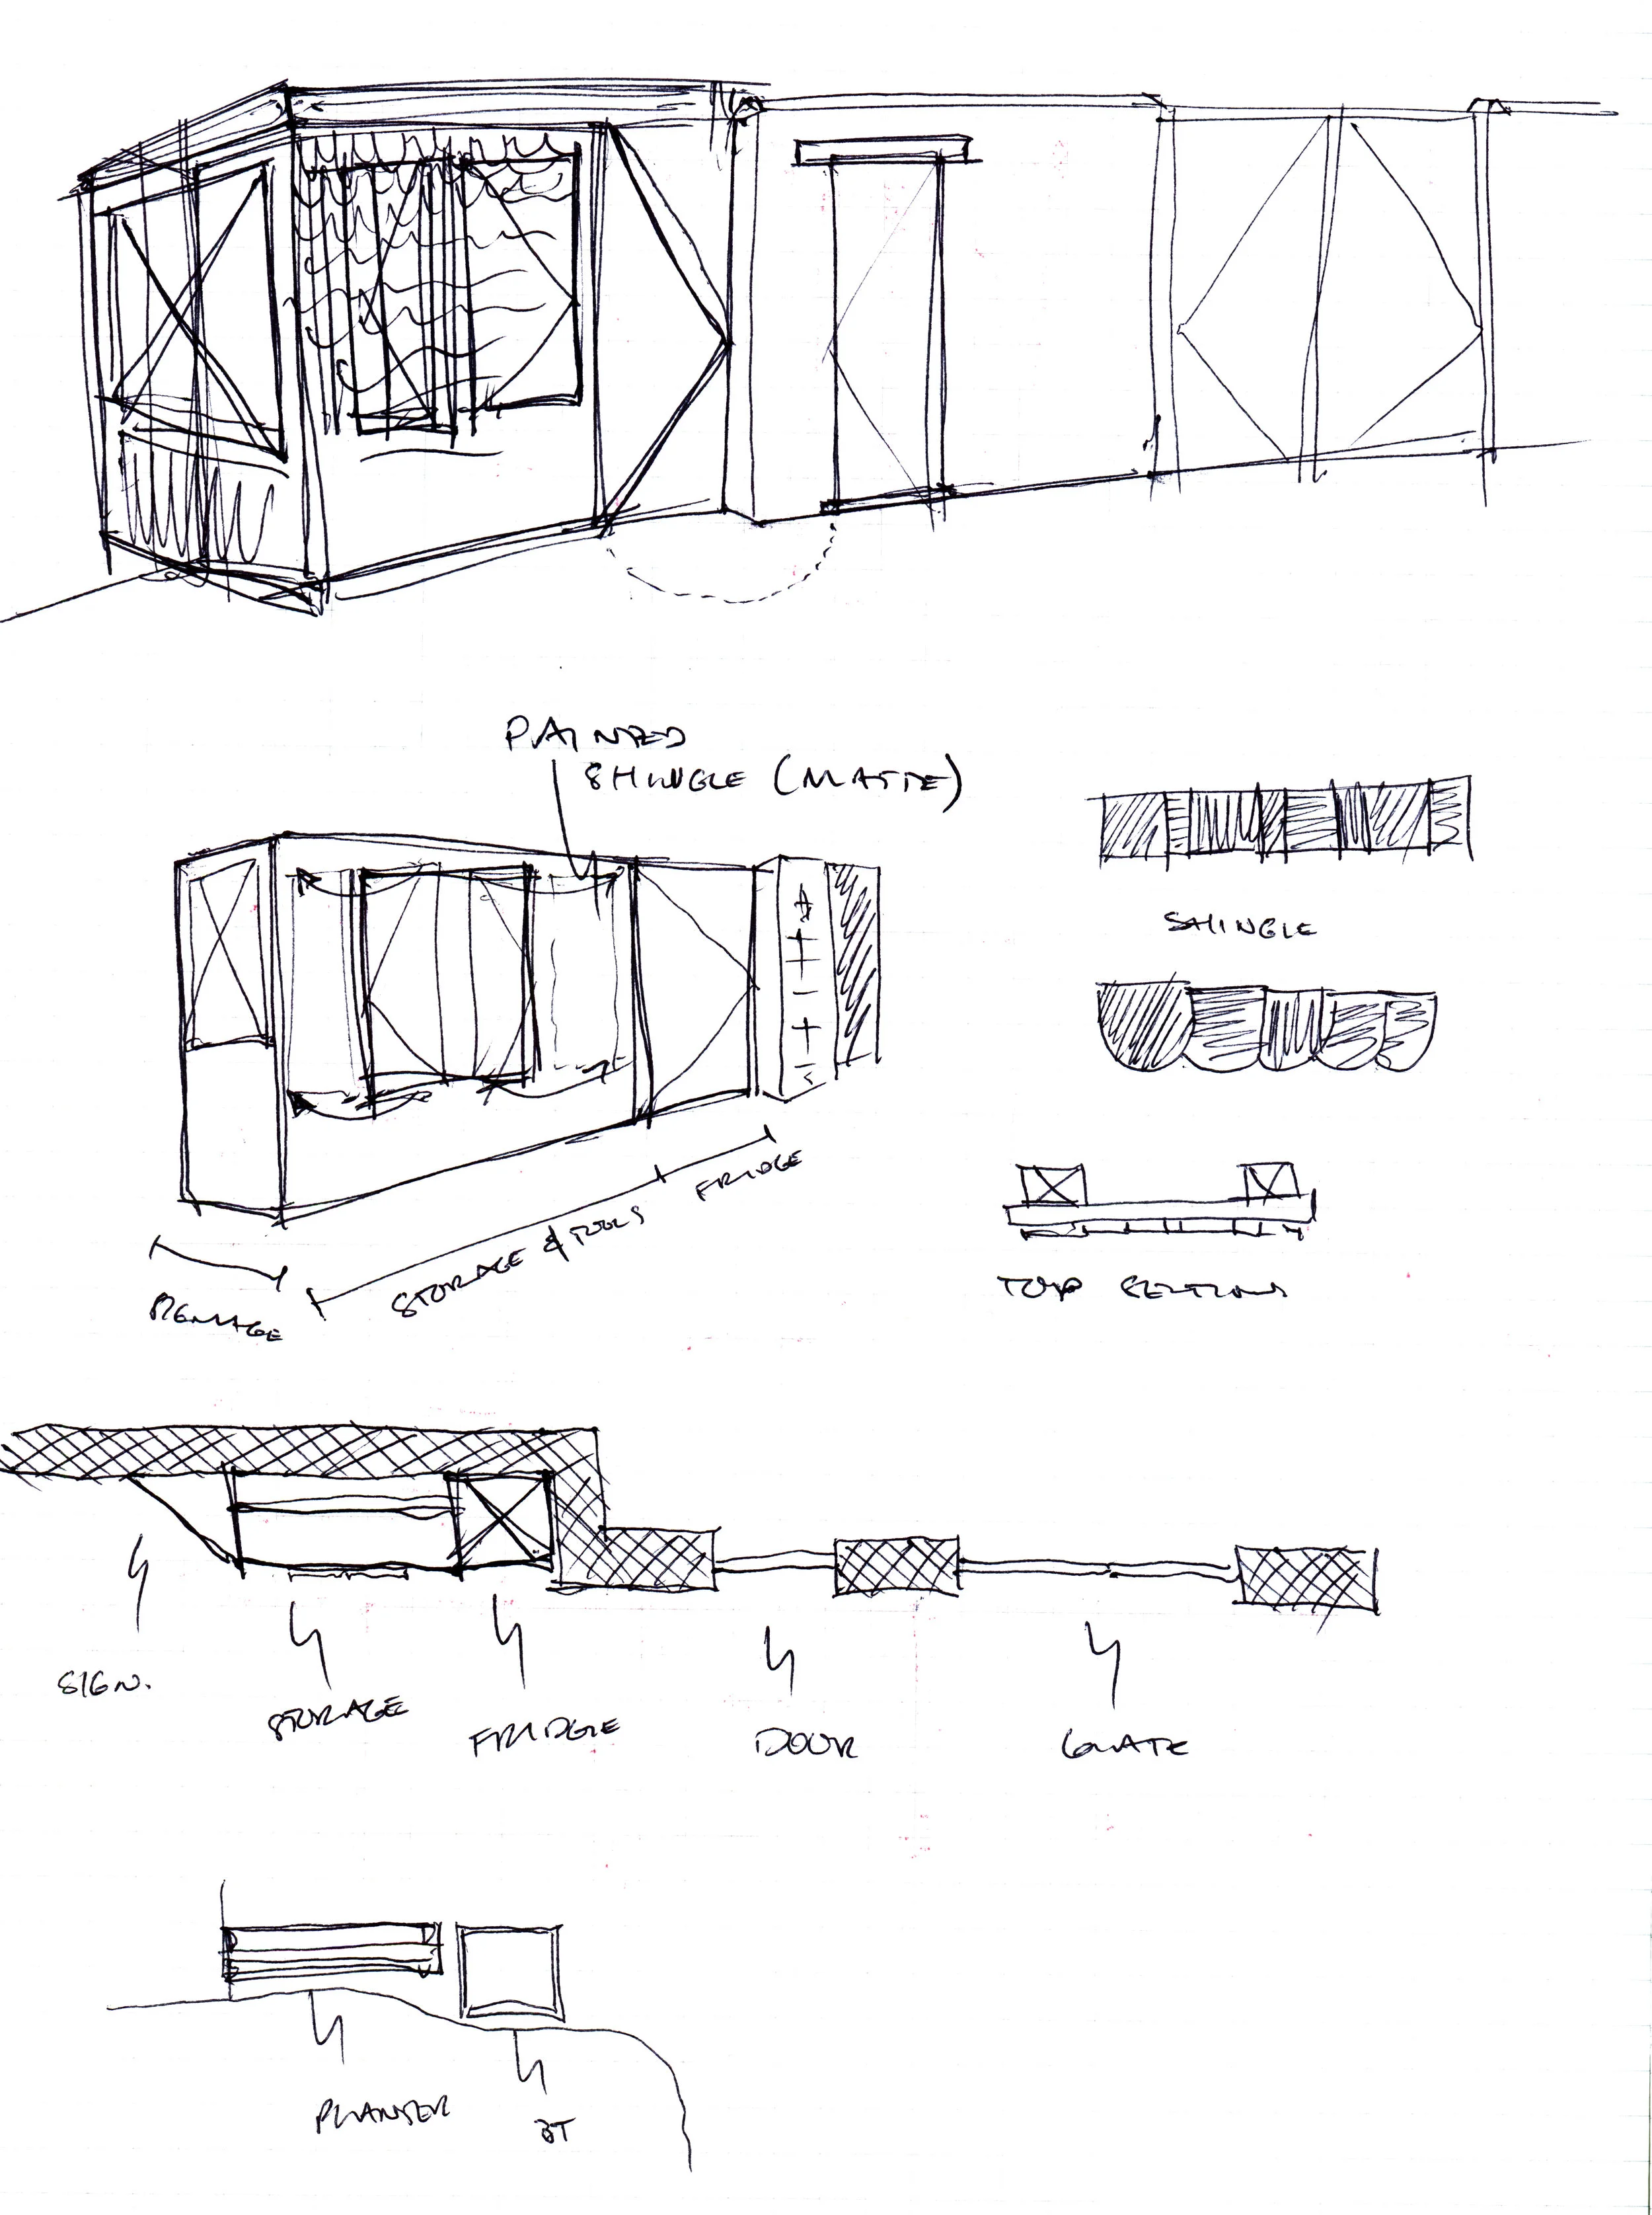 PAINTED
SHINGLE (MATTE)
SHINGLE
FRIDGE
STORAGE & TOOLS
TOP SECTION
SIGN.
STORAGE
FRIDGE
DOOR
GATE
PLANTER